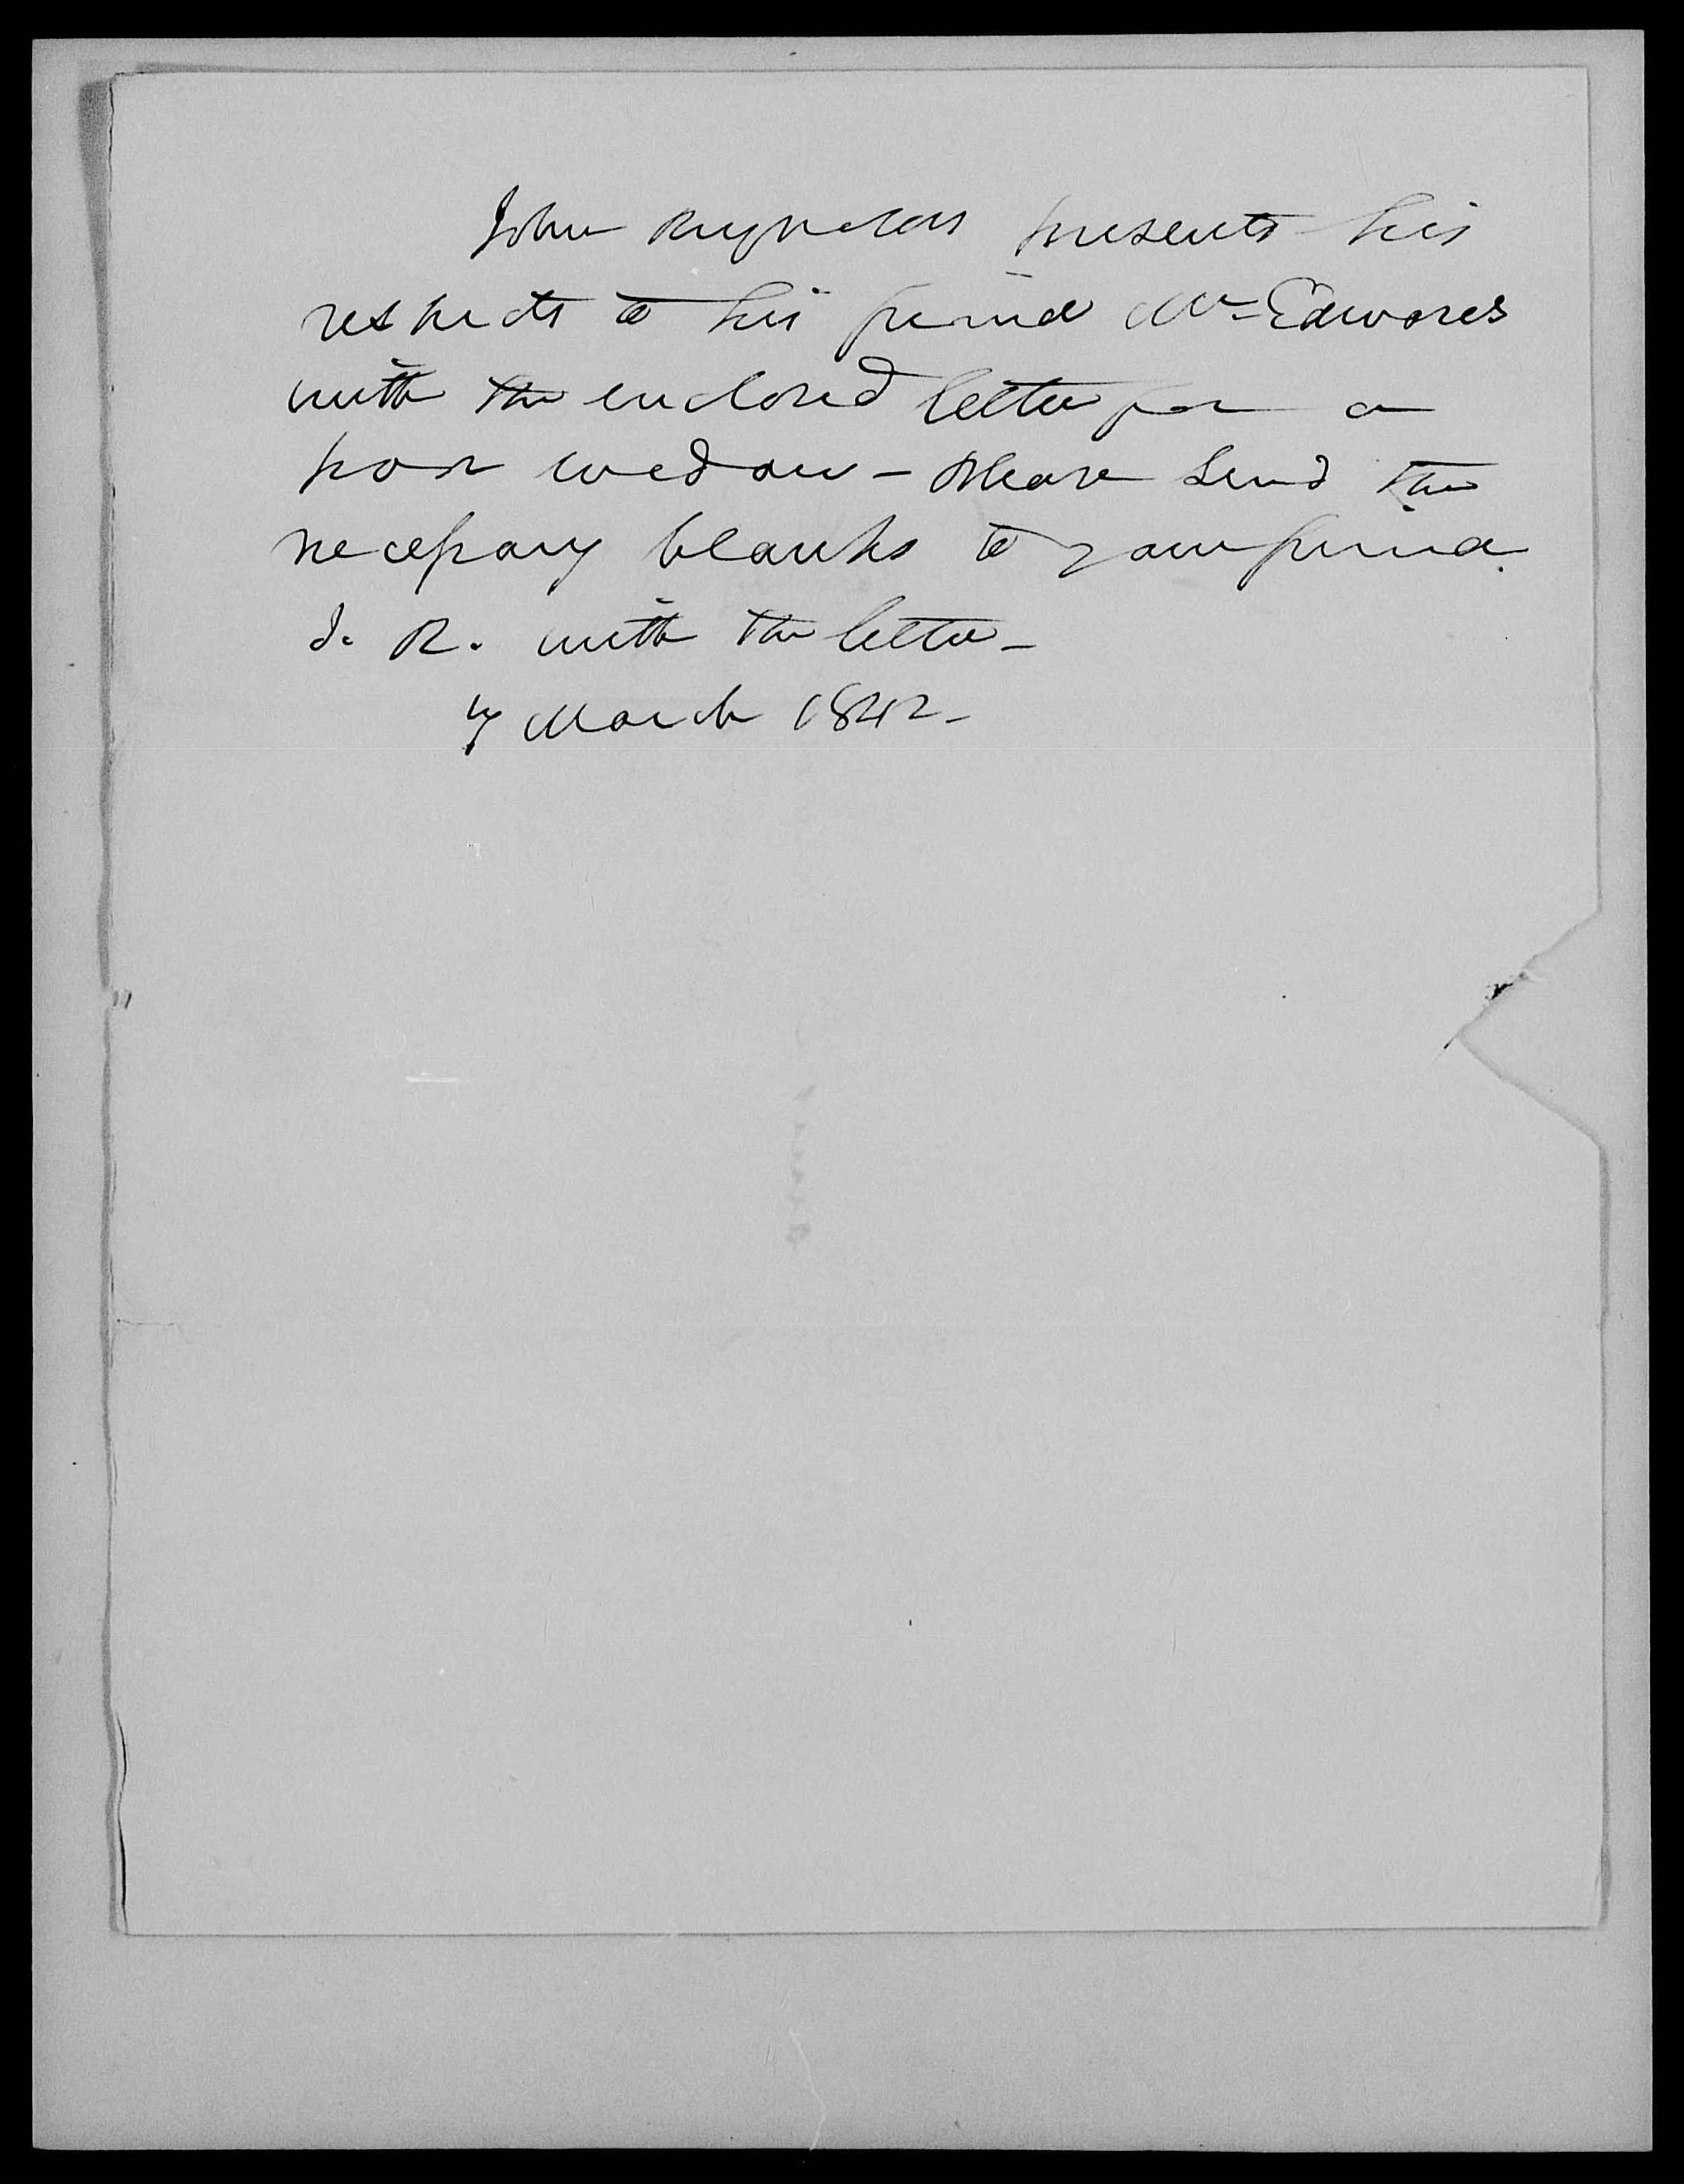 John Reynolds presents his
respects to his friend Mr Edwards
with the enclosed letter for a
poor widow - Please send the
necessary blanks to your friend
J. R. with the letter -
7 March 1842 -